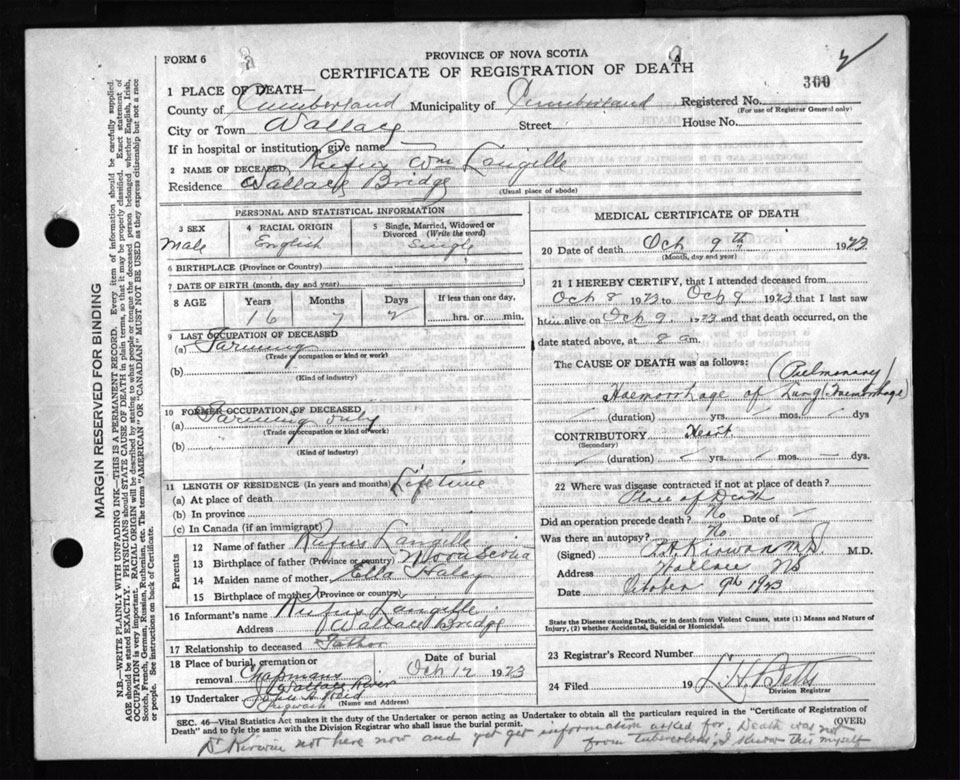 FORM 6
PROVINCE OF NOVA SCOTIA
CERTIFICATE OF REGISTRATION OF DEATH
300
1 PLACE OF DEATH—
County of Cumberland Municipality of Cumberland Registered No.
(For use of Registrar General only)
City or Town Wallace Street House No.
If in hospital or institution, give name —
2 NAME OF DECEASED Rufus Wm Langille
Residence Wallace Bridge
(Usual place of abode)
PERSONAL AND STATISTICAL INFORMATION
3 SEX
Male
4 RACIAL ORIGIN
English
5 Single, Married, Widowed or Divorced (Write the word)
Single
6 BIRTHPLACE (Province or Country)
7 DATE OF BIRTH (month, day and year)
8 AGE Years Months Days If less than one day,
16 7 2 hrs. or min.
9 LAST OCCUPATION OF DECEASED
(a) Farming
(Trade or occupation or kind or work)
(b)
(Kind of industry)
10 FORMER OCCUPATION OF DECEASED
(a) Farming only
(Trade or occupation or kind of work)
(b)
(Kind of industry)
11 LENGTH OF RESIDENCE (In years and months) Lifetime
(a) At place of death
(b) In province
(c) In Canada (if an immigrant)
Parents
12 Name of father Rufus Langille
13 Birthplace of father (Province or country) Nova Scotia
14 Maiden name of mother Ella Haley
15 Birthplace of mother (Province or country)
16 Informant's name Rufus Langille
Address Wallace Bridge
17 Relationship to deceased Father
18 Place of burial, cremation or removal Chapmans Wallace River
Date of burial
Oct 12 1923
19 Undertaker
Pugwash
(Name and Address)
MEDICAL CERTIFICATE OF DEATH
20 Date of death Oct 9th 1923
(Month, day and year)
21 I HEREBY CERTIFY, that I attended deceased from
Oct 8 1923 to Oct 9 1923 that I last saw
him alive on Oct 9 1923 and that death occurred, on
date stated above, at 8 am.
The CAUSE OF DEATH was as follows:
(Pulmonary
Haemorrhage of Lung Haemorrhage)
(duration) yrs. mos. dys
CONTRIBUTORY Heart
(Secondary)
(duration) yrs. mos. dys
22 Where was disease contracted if not at place of death?
Place of Death
Did an operation precede death? No Date of —
Was there an autopsy? No
(Signed) Kirwan M.D. M.D.
Address Wallace NS
Date October 9th 1923
State the Disease causing Death, or in death from Violent Causes, state (1) Means and Nature of Injury, (2) whether Accidental, Suicidal or Homicidal.
23 Registrar's Record Number
24 Filed 19 L. H. Betts
Division Registrar
SEC. 46—Vital Statistics Act makes it the duty of the Undertaker or person acting as Undertaker to obtain all the particulars required in the "Certificate of Registration of
Death" and to fyle the same with the Division Registrar who shall issue the burial permit.
(OVER)
Dr Kirwan not here now and yet get information asked for, Death was not
from tuberculosis, I know this myself
MARGIN RESERVED FOR BINDING
N.B.—WRITE PLAINLY WITH UNFADING INK—THIS IS A PERMANENT RECORD. Every item of information should be carefully supplied.
AGE should be stated EXACTLY. PHYSICIANS should STATE CAUSE OF DEATH in plain terms, so that it may be properly classified. Exact statement of
OCCUPATION is very important. RACIAL ORIGIN will be described by stating to what people or tongue the deceased person belonged whether English, Irish,
Scotch, French, German, Russian, Ruthenian, etc. The terms "AMERICAN" OR "CANADIAN" MUST NOT BE USED as they express citizenship but not a race
or people. See instructions on back of Certificate.